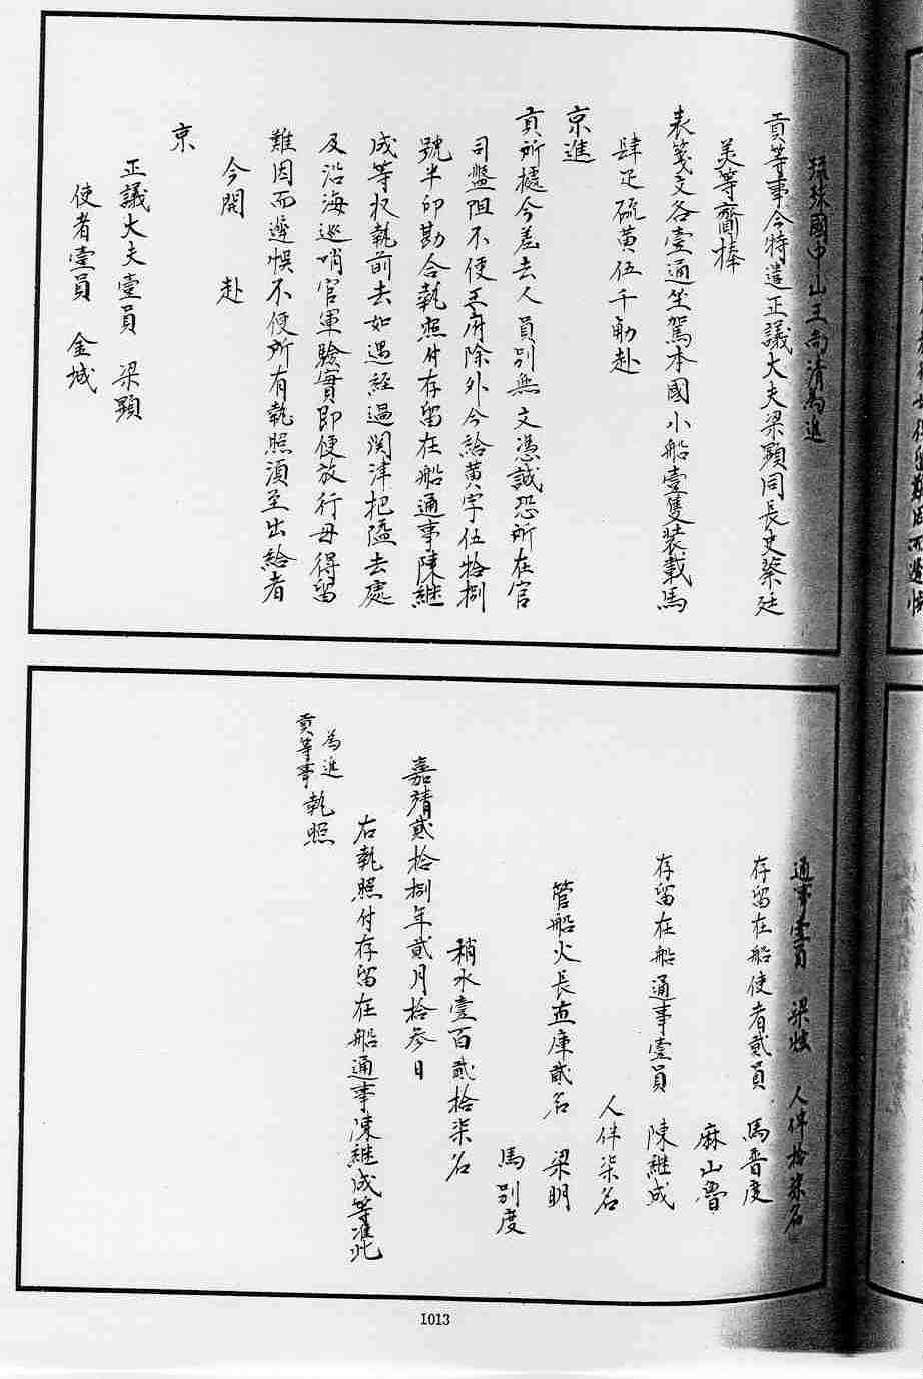 琉球國中山王尚清為進
貢等事今特遣正議大夫梁顯同長史蔡廷
美等齎捧
表箋文各壹通坐駕本國小船壹隻裝載馬
肆疋硫黃伍千觔赴
京進
貢所據今差去人員別無文憑誠恐所在官
司盤阻不便王府除外今給黃字伍拾捌
號半印勘合執照付存留在船通事陳繼
成等收執前去如遇經過関津把隘去處
及沿海巡哨官軍驗實即便放行毋得留
難因而遲悞不便所有執照須至出給者
今開 赴
京
正議大夫壹員 梁顯
使者壹員 金城
通事壹員 梁炫 人伴拾柒名
存留在船使者貳員 馬普度
麻山魯
存留在船通事壹員 陳繼成
人伴柒名
管船火長直庫貳名 梁明
馬別度
稍水壹百貳拾柒名
嘉靖貳拾捌年貳月拾叁日
右執照付存留在船通事陳繼成等准此
為進
貢等事 執照
1013